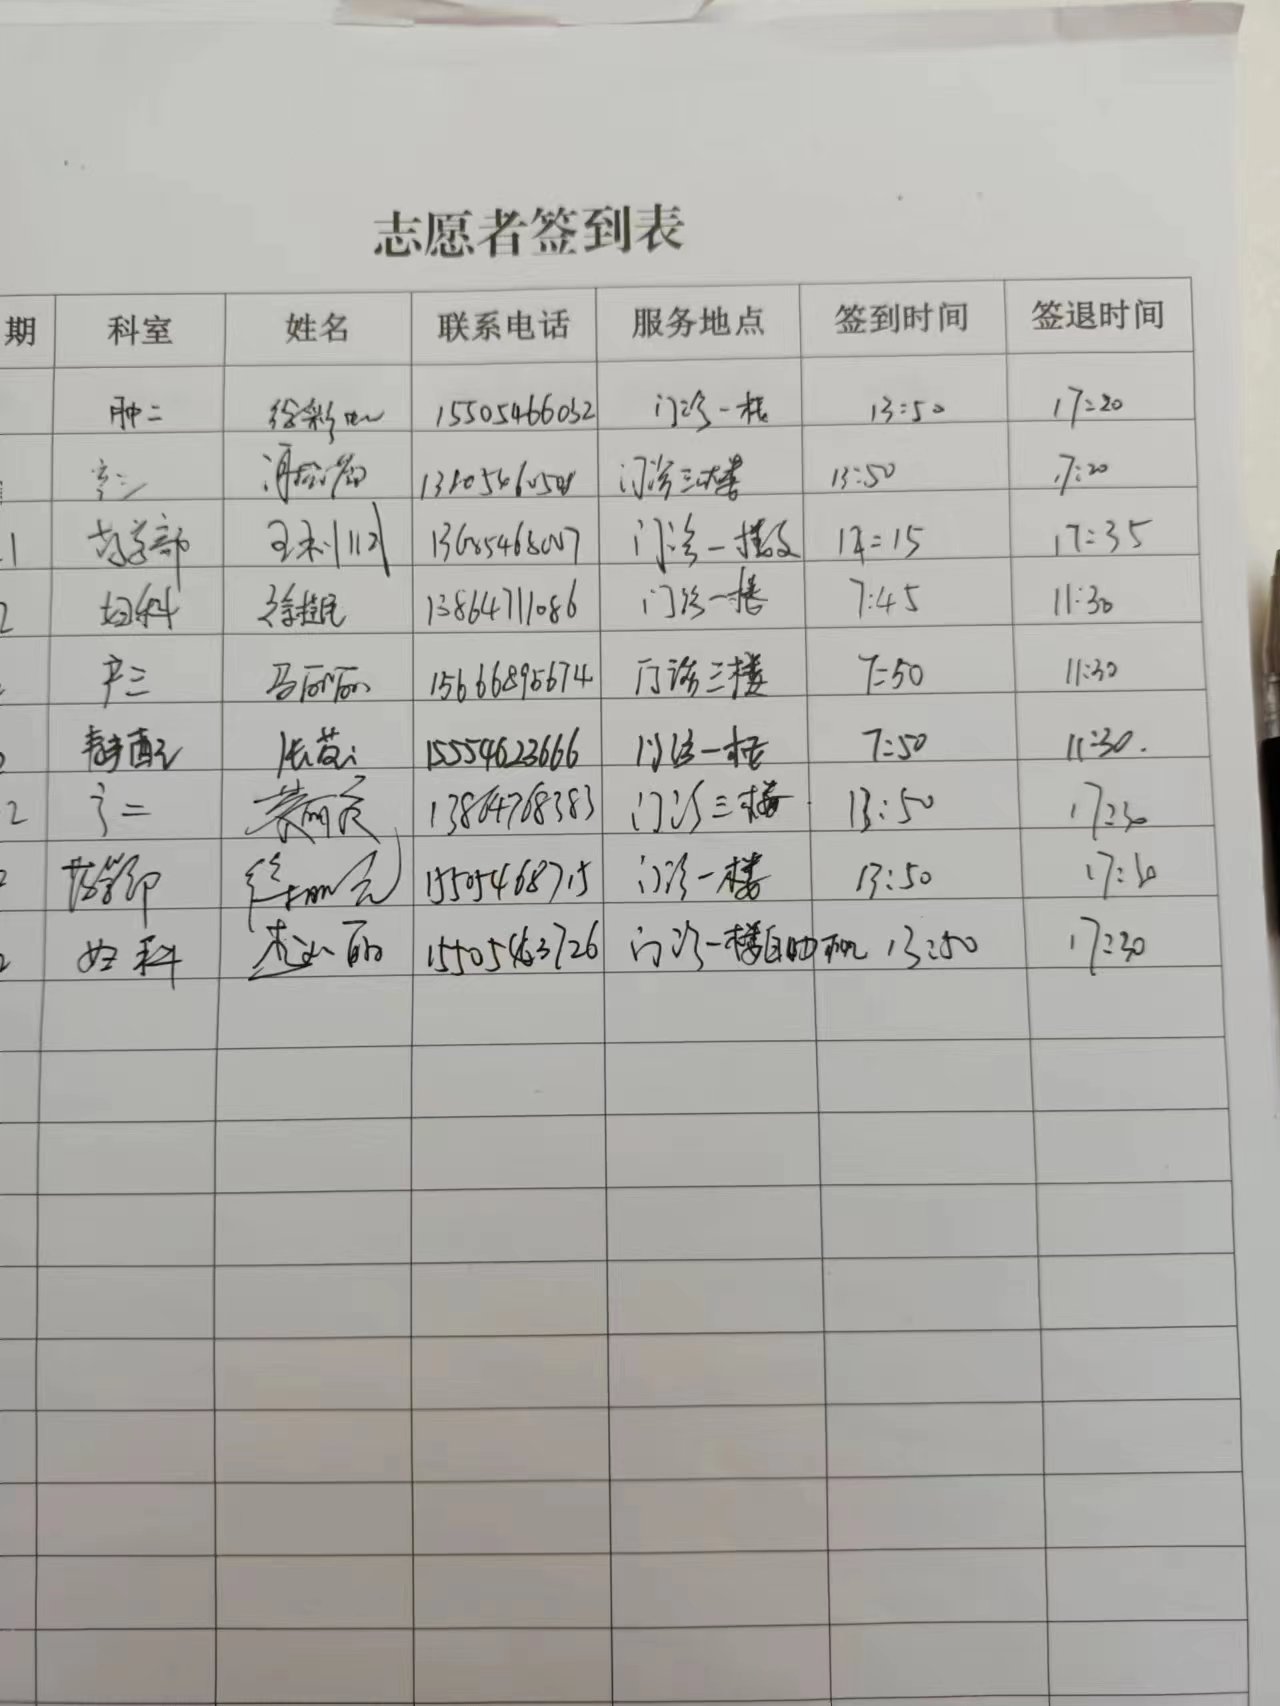 志愿者签到表
期 科室 姓名 联系电话 服务地点 签到时间 签退时间
肿二 15505466032 门诊一楼 13:50 17:20
产三 门诊三楼 13:50 17:20
1 药学部 王利川 门诊一楼 14:15 17:35
2 妇科 13864711086 门诊一楼 7:45 11:30
产三 马丽丽 15666895674 门诊三楼 7:50 11:30
静配 15554623666 门诊一楼 7:50 11:30.
2 产二 13864768383 门诊三楼 13:50 17:30
药学部 15505468715 门诊一楼 13:50 17:30
2 妇科 15505463726 门诊一楼自助机 13:50 17:30